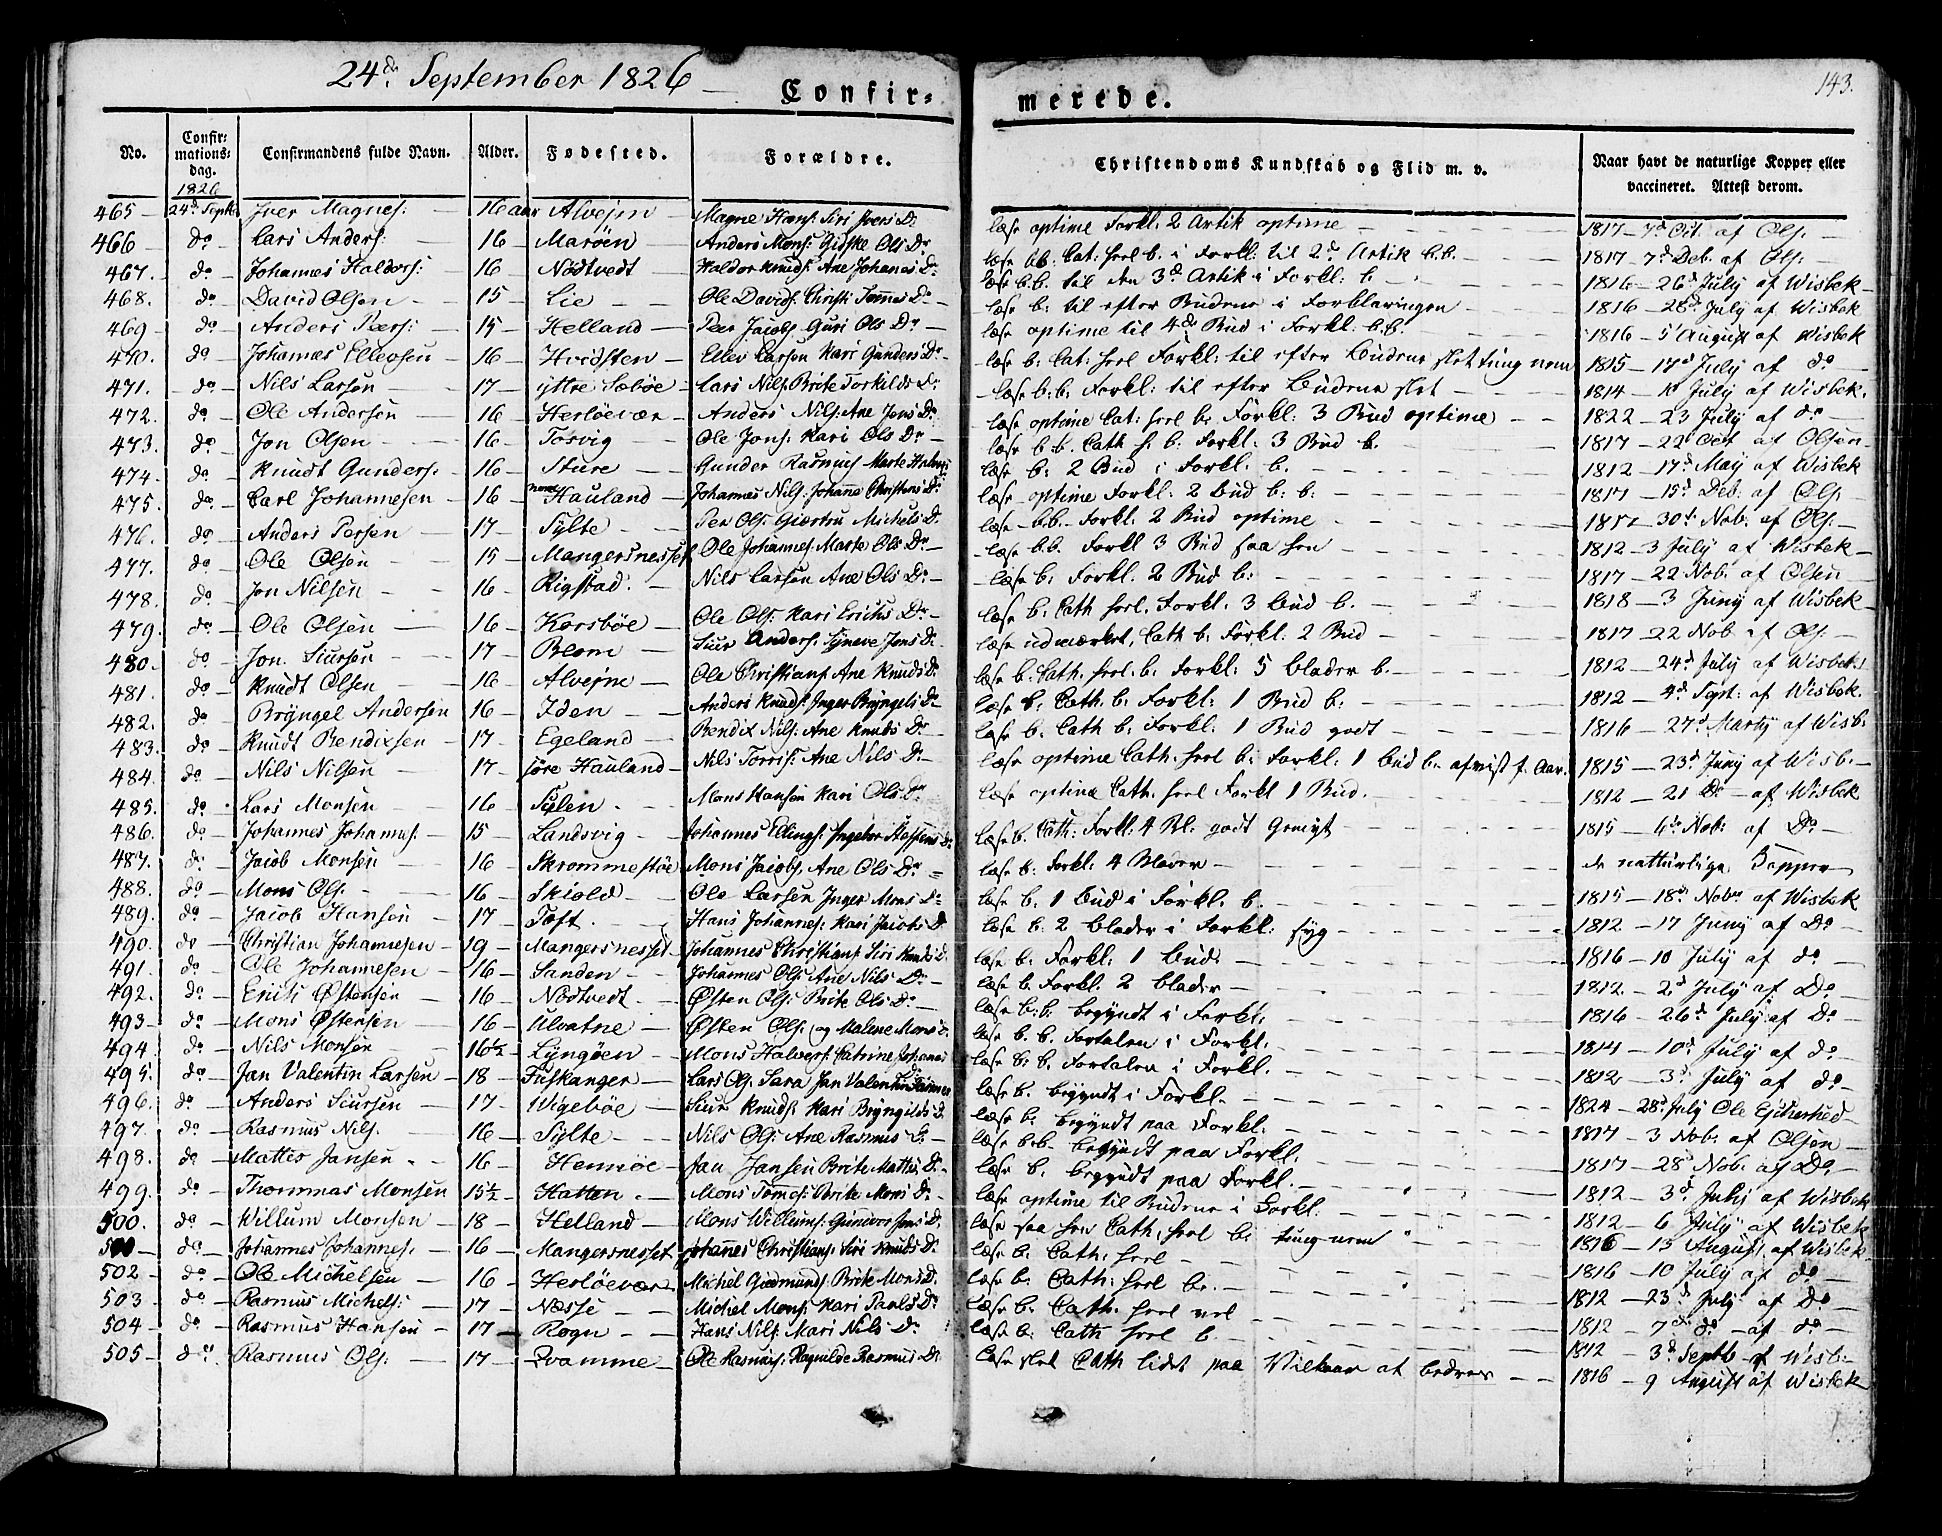 24de September 1826
Confir= merede.
143.
No.
Confir= mations= dag.
1826
Confirmandens fulde Navn.
Alder.
Fødested.
Forældre.
Christendoms Kundskab og Flid m. v.
Naar havt de naturlige Kopper eller vaccineret. Attest derom.
465 – 24d Septbr Iver Magnes: – 16 aar Alvejm – Magne Hans: Siri Ivers Dr læse optime Forkl: 2 Artik optime – 1817 – 7d Oct. af Ols: –
466 – do Lars Anders: – 16 – Marøen – Anders Mons: Gidske Ols Dr læse bb: Cat: heel b. i Forkl: til 2d Artik b.b. – 1817 – 7d Deb. af Ols: –
467. – do Johannes Haldors: 16 – Nödtvedt – Haldor Knuds: Ane Johanes Dr læse b.b. til den 3d Artik i Forkl: b – 1816 – 26d July af Wisbek –
468. – do David Olsen – 15 – Lie – Ole Davids: Christi Tomes Dr læse b: til efter Budene i Forklaringen – 1816 – 28d July af Wisbek
469 – do Anders Peers: 15 – Helland – Peer Jacobs: Guri Ols Dr – læse optime til 4de Bud i Forkl: b.b. – 1816 – 5 August af Wisbek
470. – do Johannes Ellevsen – 16 – Hvidsten – Ellev Larsen Kari Gunders Dr læse b: Cat: heel Forkl: til efter Budene slet tung nem 1815 – 17d July af do –
471. – do Nils Larsen – 17 – yttre Sæbøe – Lars Nils: Brite Torkilds Dr læse b:b: Forkl: til efter Budene slet – 1814 – 1d July af Wisbek.
472. do Ole Andersen – 16 – Herløevær – Anders Nils: Ane Jons Dr. læse optime Cat: heel b: Forkl: 3 Bud optime – 1822 – 23 July af do –
473. do Jon Olsen – 16 – Tosvig – Ole Jons: Kari Ols Dr – læse b:b. Cath h. b: Forkl: 3 Bud b. 1817 – 22 Oct af Olsen –
474 – do Knudt Gunders: – 16 – Sture – Gunder Rasmus: Marte læse b: 2 Bud i Forkl. b. – 1812 – 17d May af Wisbek
475. do Carl Johannesen – 16 – Hauland – Johannes Nils: Johanne Christens Dr læse optime Forkl: 2 Bud b: b: – 1817 – 15d Deb: af Ols: –
476. – do. Anders Persen – 17 – Sylte – Per Ols: Giertru Michels D. læse – b.b. – Forkl: 2 Bud optime – 30d Nob. af Ols: –
477. do – Ole Olsen – 15 – Mangersnesset Ole Johannes: Marte Ols Dr – læse b.b. Forkl 3 Bud saa hen – 1812 – 3 July af Wisbek –
478. do. Jon Nilsen – 16 – Rigstad. – Nils Larsen Ane Ols Dr – læse b: Forkl. 2 Bud b: – 1817 – 22 Nob: af Olsen –
479. do – Ole Olsen – 16 – Korsbøe – Ole Ols: Kari Erichs Dr – læse b: Cath heel. Forkl. 3 Bud b. – 1818 – 3 Juny af Wisbek –
480. do Jon. Siursen – 17 – Blom – Siur Anders: Syneve Jons Dr læse udmærket, Cath b: Forkl: 2 Bud – 1817 – 22 Nob. af Ols: –
481. do Knudt Olsen 16 – Alvejne – Ole Christians: Ane Knuds Dr læse b: Cath. heel. b: Forkl: 5 blader b. – 1812 – 24d July af Wisbek.
482. do Bryngel Andersen 16 – Iden – Anders Knuds: Inger Bryngels Dr læse b: Cath. b: Forkl: 1 Bud b: – 1812 – 4d Sept: af Wisbek.
483. do Knudt Bendixsen – 17 – Egeland – Bendix Nils: Ane Knuds Dr – læse b: Cath b: Forkl: 1 Bud godt – 1816 – 27d Marty af Wisb:
484. do – Nils Nilsen – 17 – søre Hauland – Nils Torris: Ane Nils Dr – læse optime Cath. heel b: Forkl: 1 Bud b. afvist f. Aar. 1815 – 23d Juny af Wisb. –
485. do. Lars Monsen – 16 – Sylen – Mons Hansen Kari Ols Dr læse optime Cath. heel Forkl 1 Bud. – 1812 – 21 Do – af Wisbek
486. do – Johannes Johannes: 15 – Landsvig – Johannes Ellings: Ingebor Steffens Dr læse b. Cath: Forkl: 4 Bl. godt Gemyt – 1815 – 6te Nob: af Do –
487. do Jacob Monsen – 16 – Skrommestøe – Mons Jacobs, Ane Ols Dr – læse b: Forkl: 4 Blader – de natturlige Kopper
488. do – Mons Ols: – 16 – Skiold – Ole Larsen Inger Mons Dr læse b: 1 Bud i Forkl: b. – 1815 – 18d Nobr af Wisbek
489. do – Jacob Hansen – 17 – Toft. – Hans Johannes: Kari Jacobs D. læse b: 2 blader i Forkl: syg – 1812 – 17 Juny af Do –
490. do Christian Johannesen – 19 – Mangersnesset. Johannes Christians: Siri Knuds D. læse b: Forkl: 1 Bud. – 1816 – 10 July af do –
491. do Ole Johannesen – 16 – Sanden – Johannes Ols: Ane Nils Dr – læse b. Forkl. 2 blader – 1812 – 2d July af Do –
492. do – Erich Østensen – 16 – Nödtvedt – Østen Ols: Brite Ols Dr – læse b:b: begyndt i Forkl: – 1816 – 26d July af Do –
493 – do – Mons Østensen 16 – Ulvatne – Østen Ols: og Malene Mons D: læse b. b. Fortalen i Forkl: – 1814 – 10d July af do –
494. do – Nils Monsen – 16½ – Lyngöen – Mons Halvers: Catrine Johanes læse b: b. Fortalen i Forkl. – 1812 – 3d July af do –
495. do – Jan Valentin Larsen – 18 – Fuskanger – Lars Ols: Sara Jan Valentin læse b. begyndt i Forkl. – 1824 – 28d July Ole
496. do – Anders Siursen – 17 – Vigebøe – Siur Knuds: Kari Bryngilds D læse b. begyndt paa Forkl: – 1817 – 3 Nob. af Olsen –
497. do – Rasmus Nils. 16 – Sylte – Nils Ols: Ane Rasmus D. – læse b:b. begyndt paa Forkl. – 1817 – 28d Nob: af Do –
498. do – Mattis Jansen – 16 – Hennøe – Jan Jansen Brite Matthis Dr – læse b. begyndt paa Forkl. – 1812 – 3d July af Wisbek
499. do. Thommas Monsen 15½ – Hatten. – Mons Tomes: Brite Mons Dr – læse optime til Budene i Forkl: – 1812 – 6 July af Wisbek
500. do – Willum Monsen – 18 – Helland – Mons Willums: Guinevor Jens D. læse saa hen Cath. heel b: tung nem – 1816 – 15 August af Wisbek
501 – do – Johannes Johannes: – 16 – Mangersnesset Johannes Christians: Siri Knuds Dr læse b: Cath: heel – 1816 – 10 July af do –
502 – do – Ole Michelsen – 16 – Herløevær Michel Gudmunds: Brite Mons D. læse b: Cath: heel b. – 1812 – 23d July af Do –
503 – do – Rasmus Michels: – 17 – Næsse – Michel Mons: Kari Pauls Dr læse b: Cath. heel vel – 1812 – 7d do – af do –
504 – do – Rasmus Hansen – 17 – Rogn – Hans Nils: Mari Nils Dr læse b: Cath heel b. – 1812 – 3d Septb – af Wisb: –
505 – do Rasmus Ols: – 17 – Qvamme – Ole Rasmus: Ragnilde Rasmus D: læse slet Cath lidet paa Vilkaar at bedres – 1816 – 9 August af Wisbek